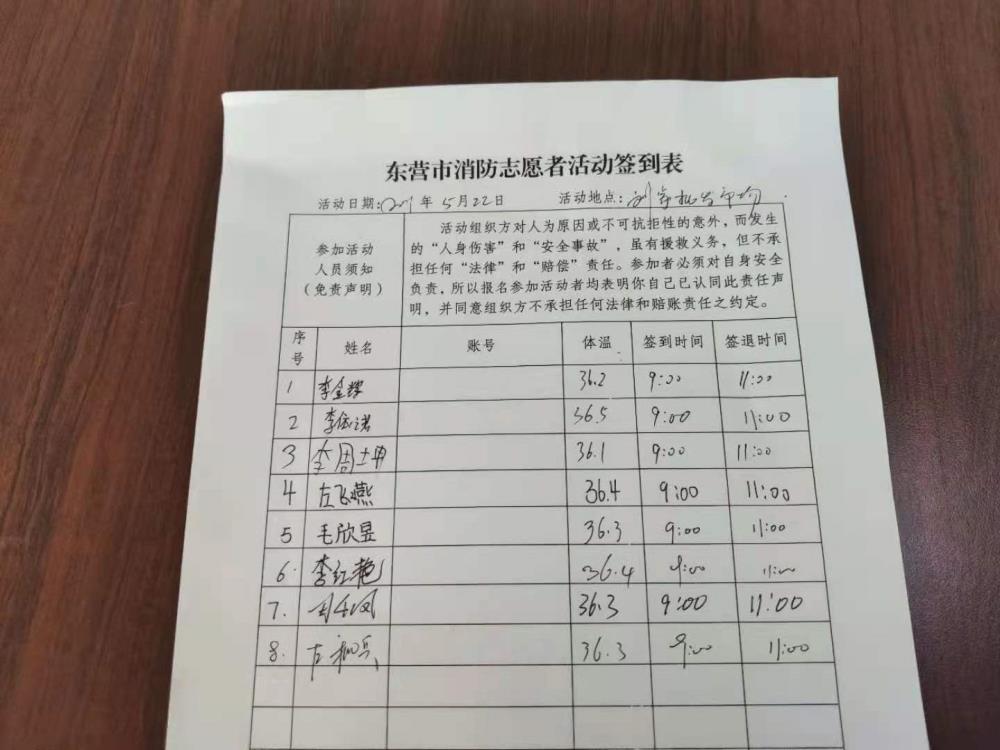 东营市消防志愿者活动签到表
活动日期:2021年5月22日 活动地点:
参加活动
人员须知
(免责声明)
活动组织方对人为原因或不可抗拒性的意外，而发生
的“人身伤害”和“安全事故”，虽有援救义务，但不承
担任何“法律”和“赔偿”责任。参加者必须对自身安全
负责，所以报名参加活动者均表明你自己已认同此责任声
明，并同意组织方不承担任何法律和赔账责任之约定。
序号 姓名 账号 体温 签到时间 签退时间
1 李金 36.2 9:00 11:00
2 李依诺 36.5 9:00 11:00
3 李周士坤 36.1 9:00 11:00
4 左飞燕 36.4 9:00 11:00
5 毛欣昱 36.3 9:00 11:00
6. 李红艳 36.4 9:00 11:00
7. 36.3 9:00 11:00
8. 36.3 9:00 11:00